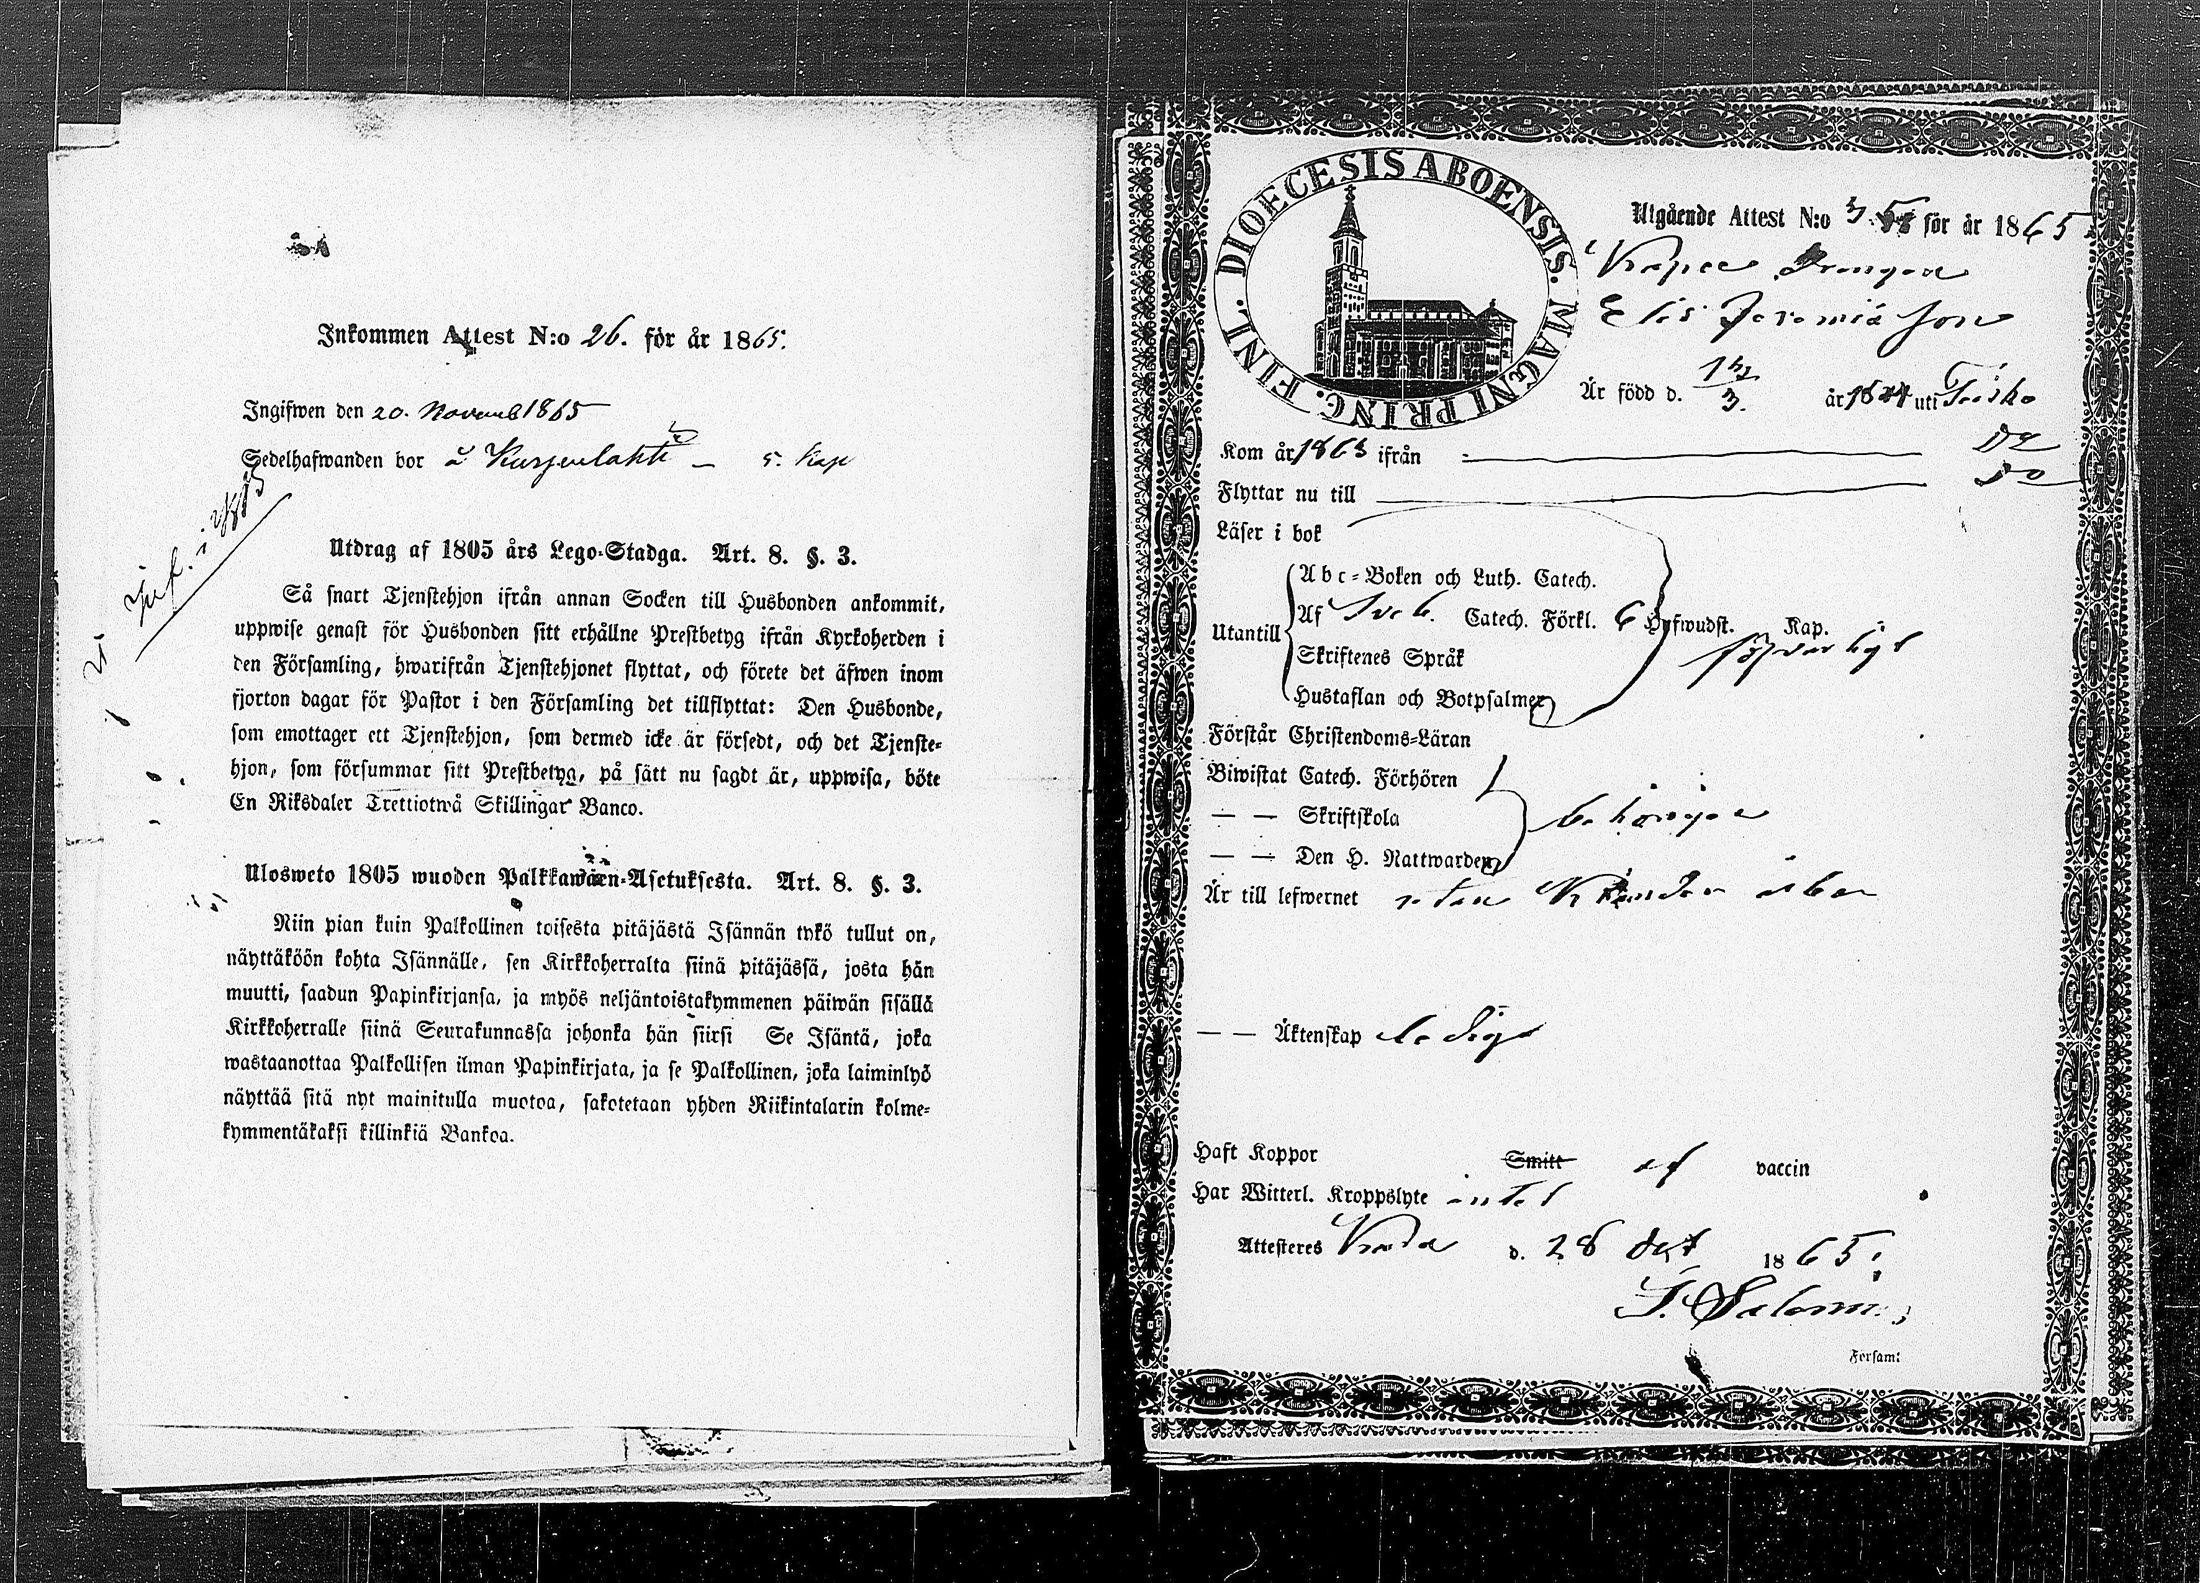 Inkommen Attest N:o 26. för år 1865.
Ingifwen den 20. Novemb 1865
Sedelhafwanden bor å Kurjenlahti – 5. Kap
Inf. i
Utdrag af 1805 års Lego-Stadga. Art. 8. §. 3.
Så snart Tjenstehjon ifrån annan Socken till Husbonden ankommit,
uppwise genast för Husbonden sitt erhållne Prestbetyg ifrån Kyrkoherden i
den Församling, hwarifrån Tjenstehjonet flyttat, och förete det äfwen inom
fjorton dagar för Pastor i den Församling det tillflyttat: Den Husbonde,
som emottager ett Tjenstehjon, som dermed icke är försedt, och det Tjenste-
hjon, som försummar sitt Prestbetyg, på sätt nu sagdt är, uppwisa, böte
En Riksdaler Trettiotwå Skillingar Banco.
Ulosweto 1805 wuoden Palkkawäen-Asetuksesta. Art. 8. §. 3.
Niin pian kuin Palkollinen toisesta pitäjästä Isännän tykö tullut on,
näyttäköön kohta Isännälle, sen Kirkkoherralta siinä pitäjässä, josta hän
muutti, saadun Papinkirjansa, ja myös neljäntoistakymmenen päiwän sisällä
Kirkkoherralle siinä Seurakunnassa johonka hän siirsi Se Isäntä, joka
wastaanottaa Palkollisen ilman Papinkirjata, ja se Palkollinen, joka laiminlyö
näyttää sitä nyt mainitulla muotoa, sakotetaan yhden Riikintalarin kolme-
kymmentäkaksi killinkiä Bankoa.
DIOECESIS ABOENSIS. MAGNI PRINC. FINL.
Utgående Attest N:o för år 1865.
Drengen
Elis Jeremiä son
Är född d. 3. år uti Teisko
Kom år 1863 ifrån
Flyttar nu till
Läser i bok
Abc-Boken och Luth. Catech.
Utantill Af Sveb. Catech. Förkl. 6 Hufwudst. Kap. försvarligt
Skriftenes Språk
Hustaflan och Botpsalmer
Förstår Christendoms-Läran
Biwistat Catech. Förhören
— — Skriftskola behörigen
— — Den H. Nattwarden
Är till lefwernet utan
— — Äktenskap ledig
Haft Koppor Smitt af vaccin
Har Witterl. Kroppslyte intet
Attesteres d. 28 Oct 1865.
Forsam: